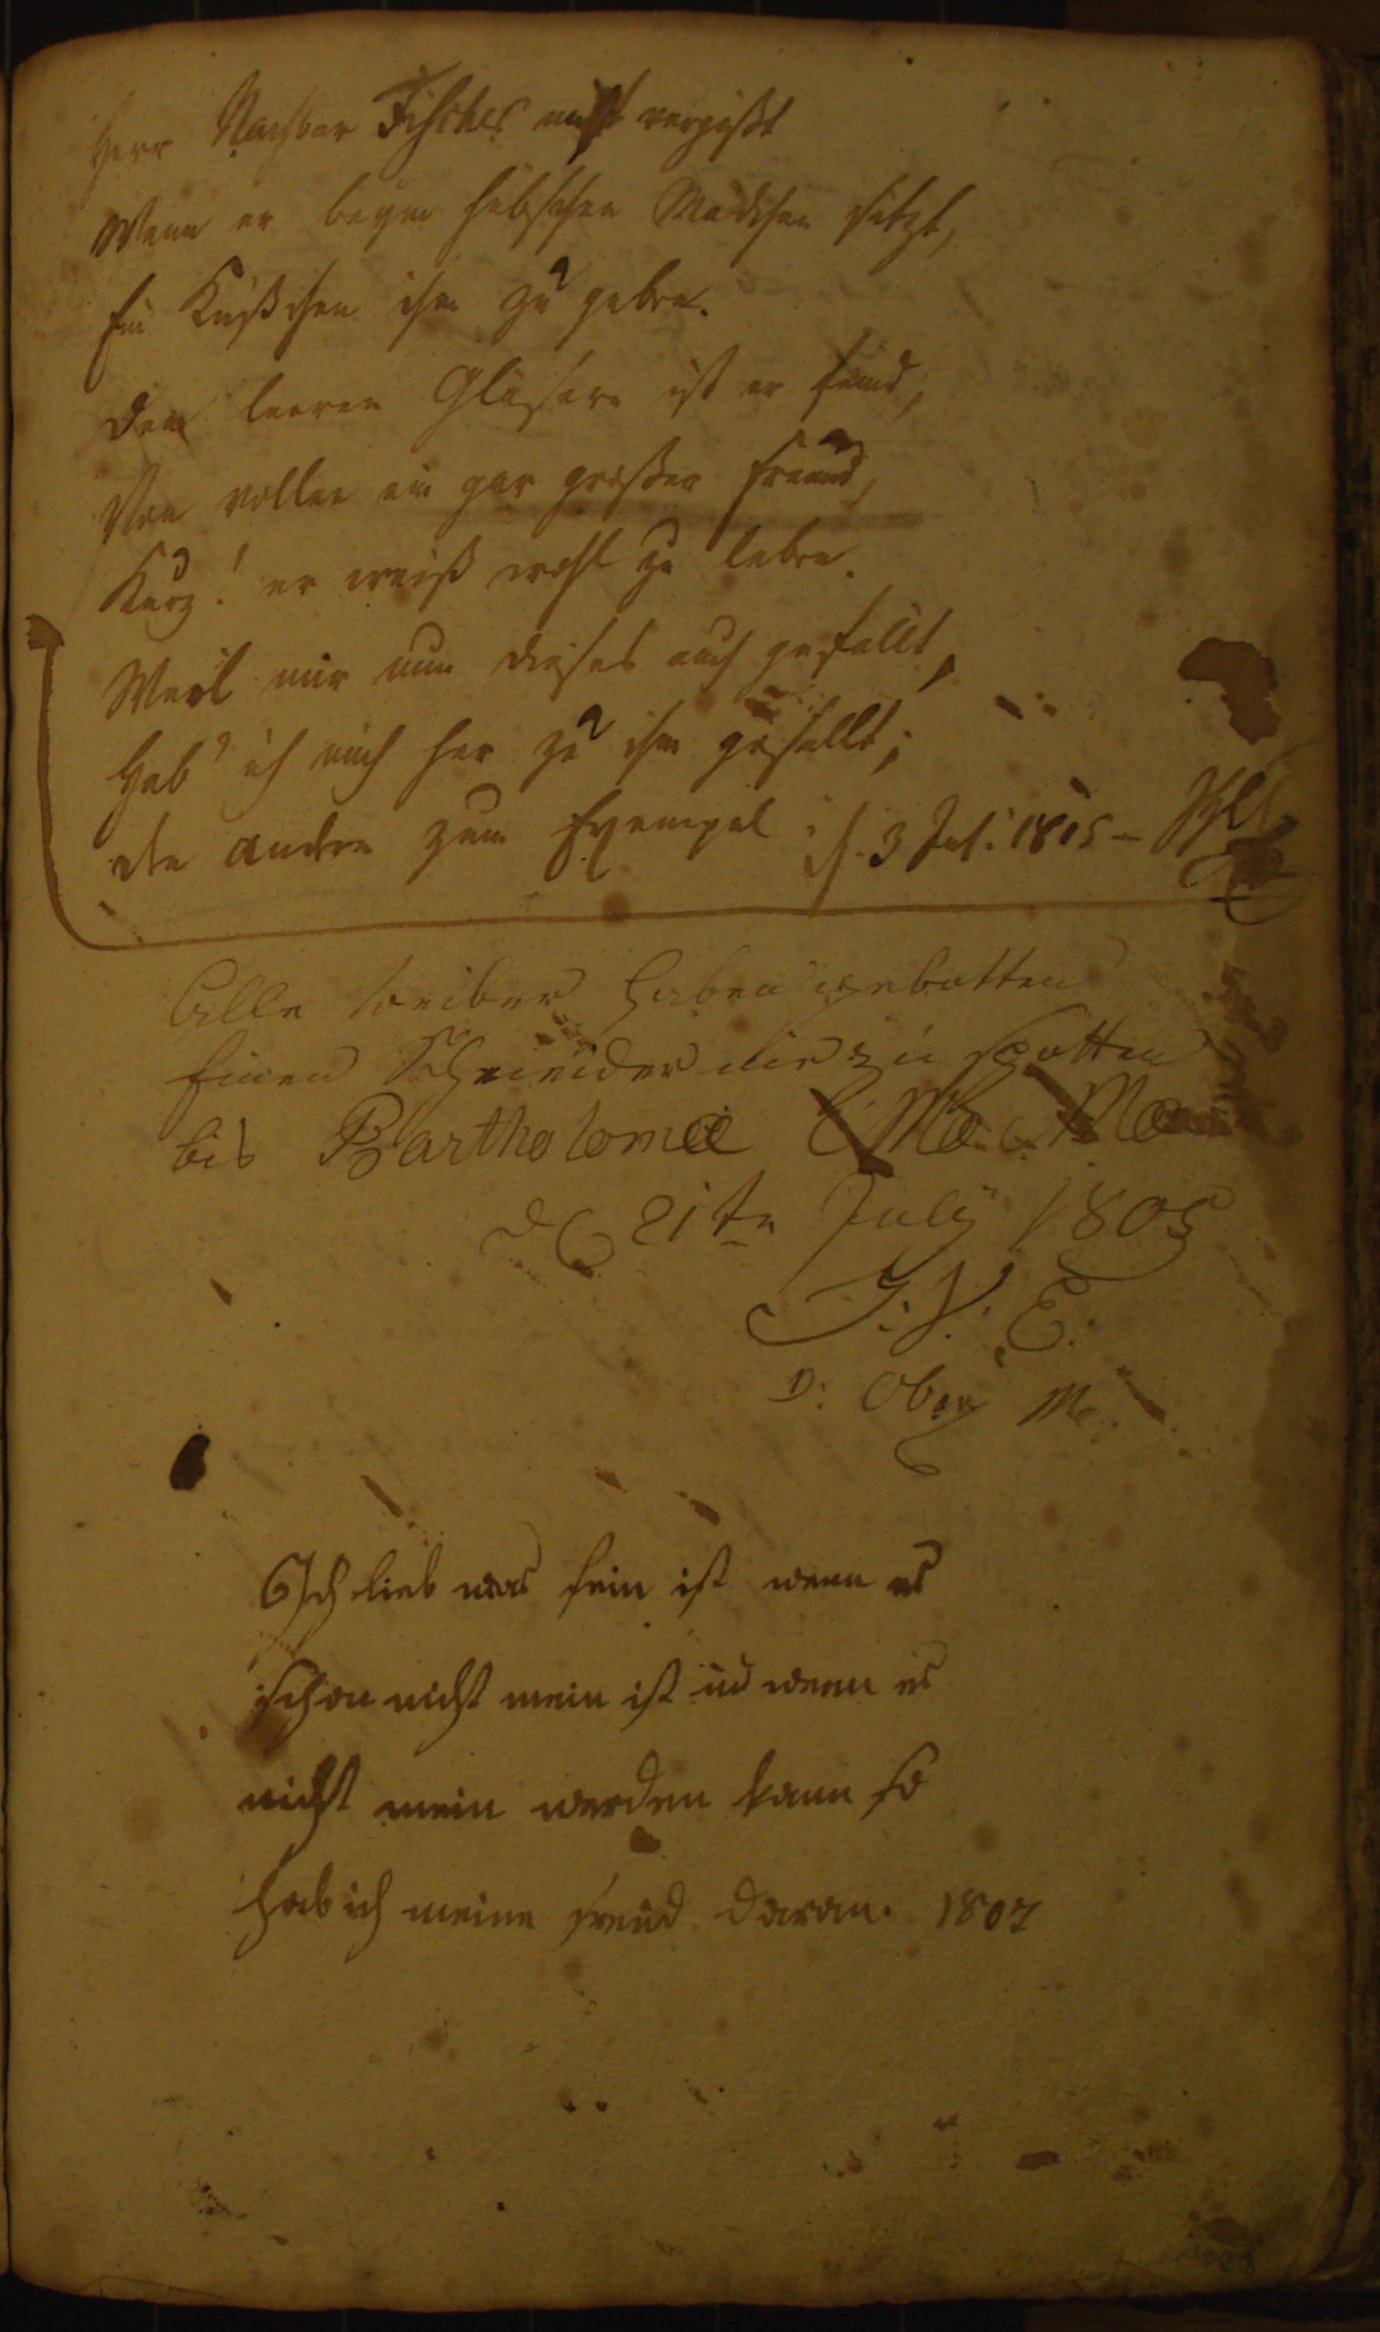 Herr Nachbar Fischer nicht vergißt
Wenn er beym hübschen Mädchen sitzt,
Ein Küßchen ihm zu geben.
Den leeren Gläsern ist er feind,
Von vollen ein gar großer Freund,
Kurz! er weiß wohl zu leben.
Weil mir nun dieses auch gefällt,
Hab' ich mich her zu ihm gesellt;
den andern zum Exempel 3 Jul. 1805 –
Alle weiber haben gebotten
Einen Schneider nie zu spotten
bis Bartholomæ
d 21te July 1805
J: V: E:
D: Ober Me:
Ich lieb was fein ist wenn es
schon nicht mein ist und wenn es
nicht mein werden kann so
hab ich meine freud daran. 1807